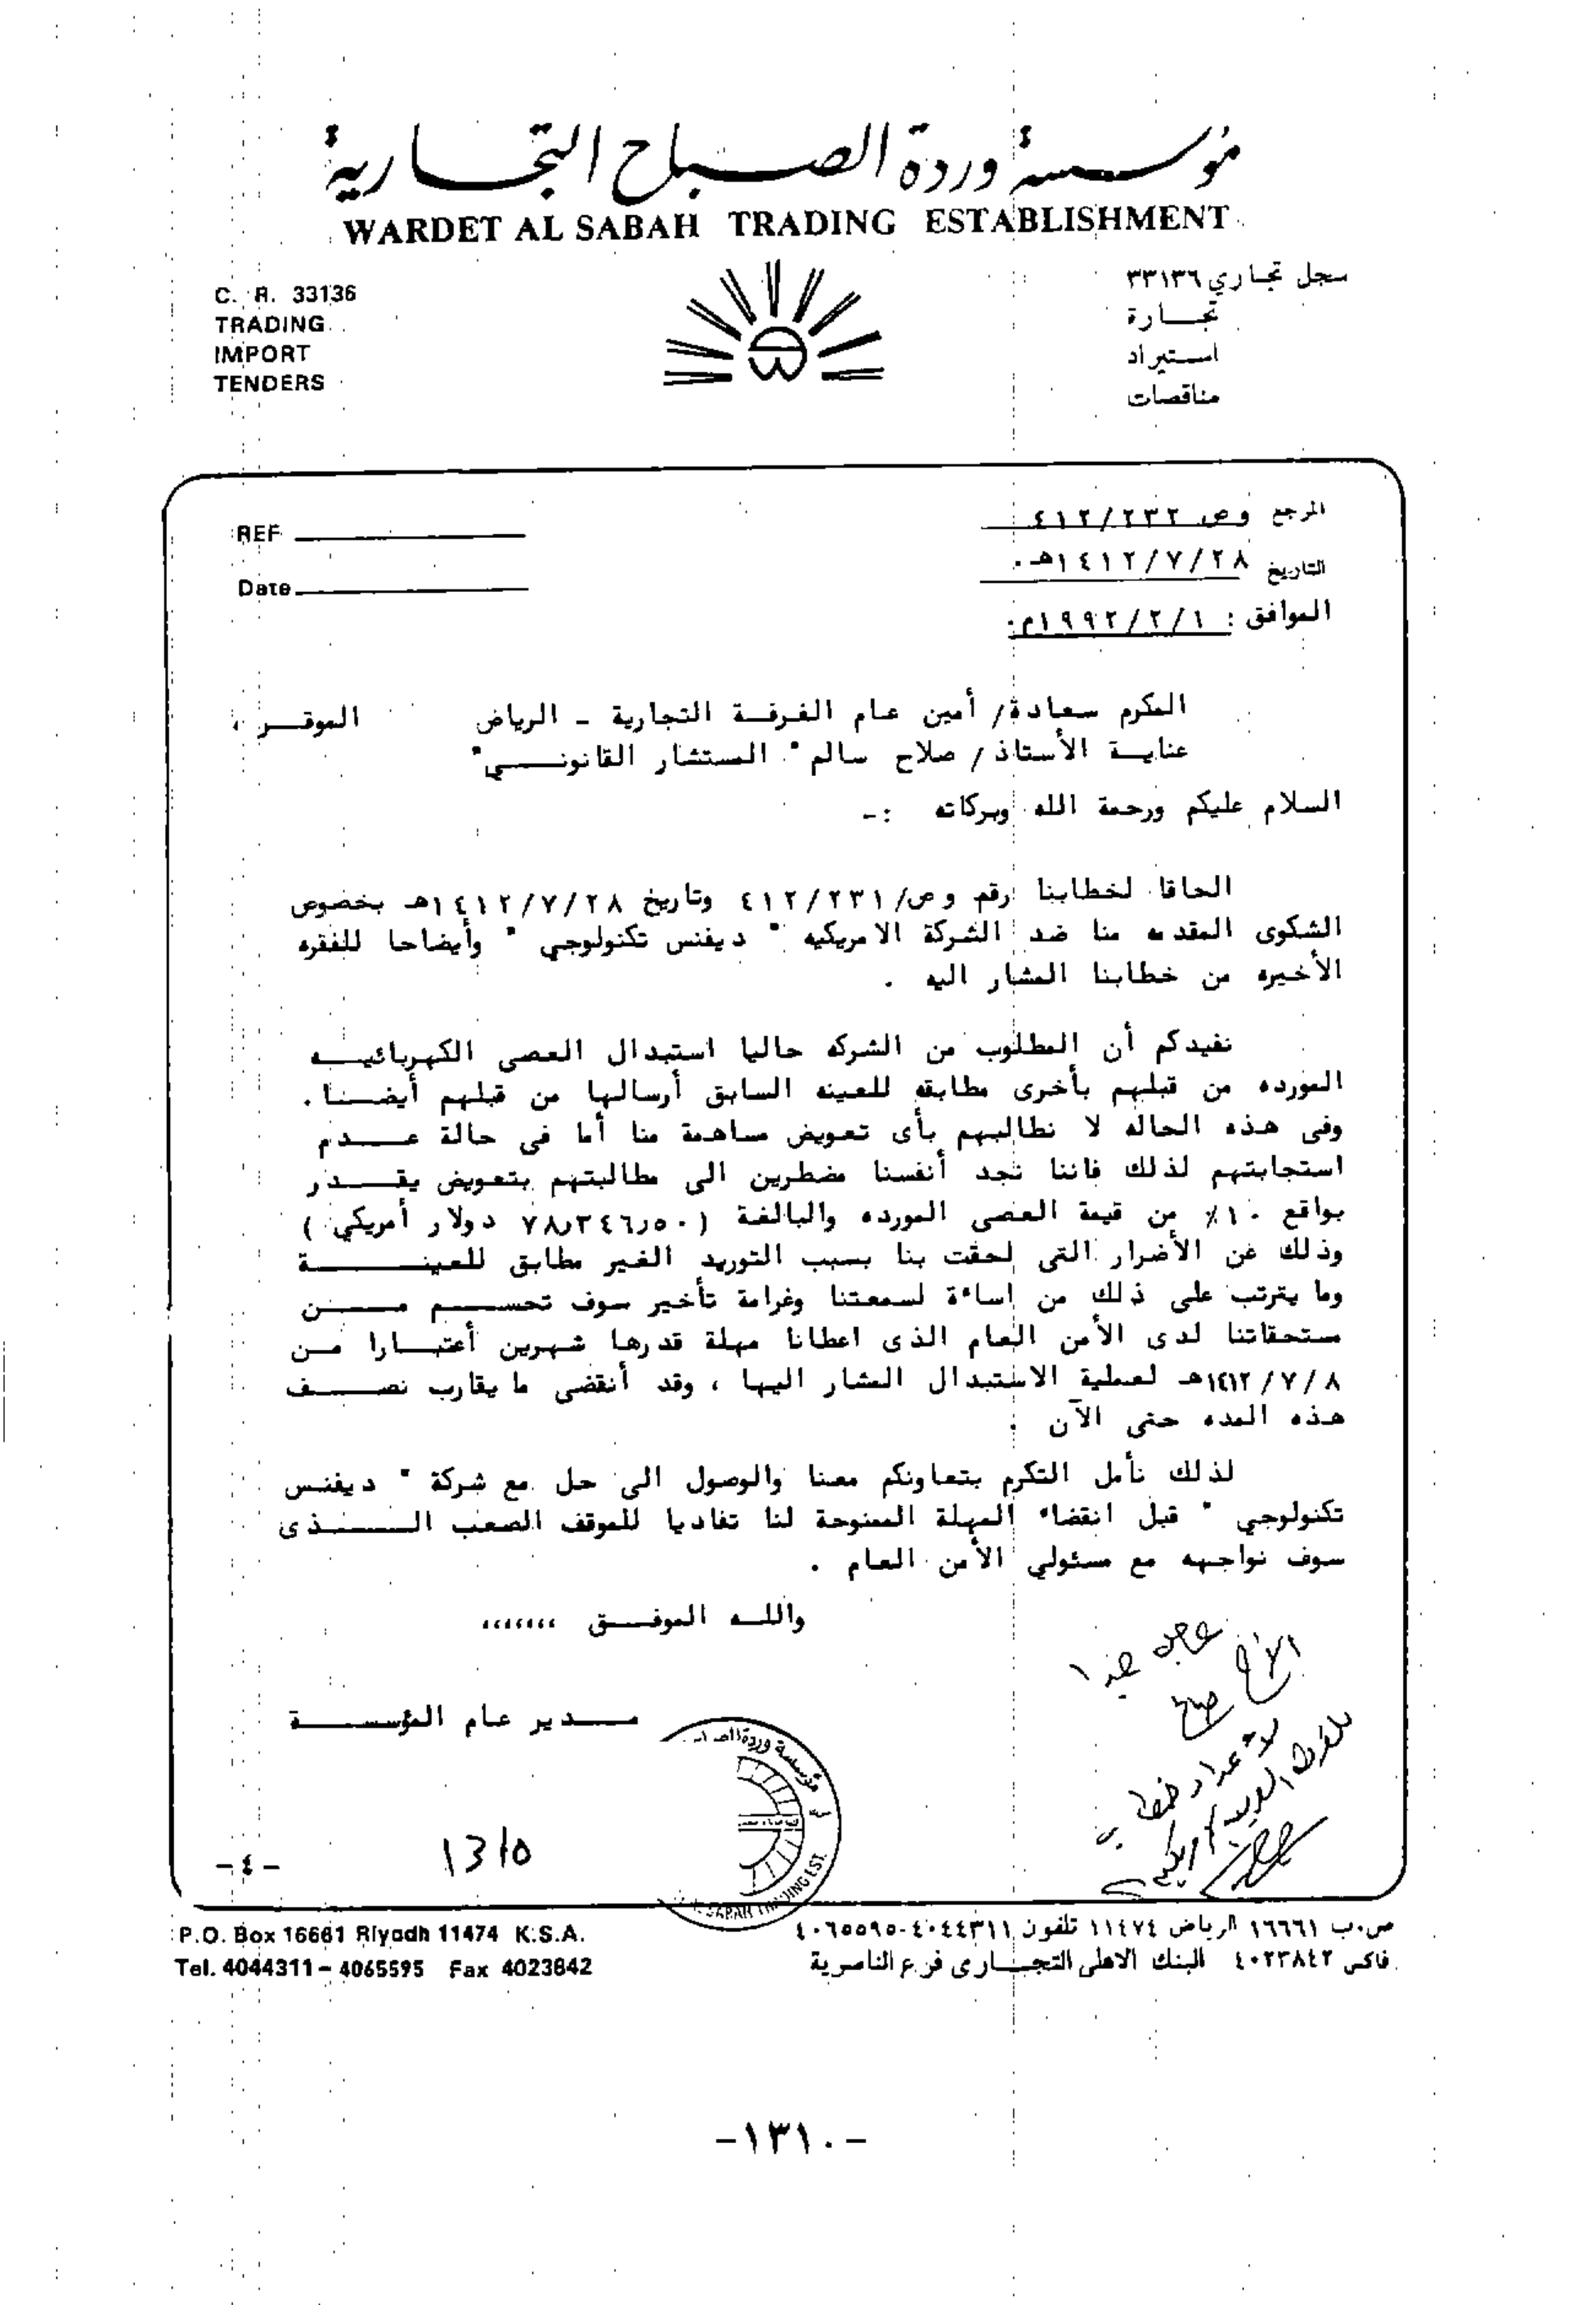 مؤسسة وردة الصباح التجارية
WARDET AL SABAH TRADING ESTABLISHMENT
C. R. 33136
TRADING
IMPORT
TENDERS
سجل تجاري ٣٣١٣٦
تجارة
استيراد
مناقصات
REF
Date
المرجع وص ٤١٢/٢٣٢
التاريخ ١٤١٢/٧/٢٨هـ.
الموافق : ١٩٩٢/٢/١م.
المكرم سعادة/ أمين عام الغرفة التجارية - الرياض الموقر ،
عناية الأستاذ/ صلاح سالم " المستشار القانوني"
السلام عليكم ورحمة الله وبركاته :-
الحاقا لخطابنا رقم وص/٤١٢/٢٣١ وتاريخ ١٤١٢/٧/٢٨هـ بخصوص
الشكوى المقدمه منا ضد الشركة الامريكيه " ديفنس تكنولوجي " وأيضاحا للفقره
الأخيره من خطابنا المشار اليه .
نفيدكم أن المطلوب من الشركه حاليا استبدال العصى الكهربائيه
المورده من قبلهم بأخرى مطابقه للعينه السابق أرسالها من قبلهم أيضنا.
وفى هذه الحاله لا نطالبهم بأى تعويض مساهمة منا أما فى حالة عدم
استجابتهم لذلك فاننا نجد أنفسنا مضطرين الى مطالبتهم بتعويض يقدر
بواقع ١٠٪ من قيمة العصى المورده والبالغة (٧٨٫٣٤٦٫٥٠ دولار أمريكي )
وذلك عن الأضرار التى لحقت بنا بسبب التوريد الغير مطابق للعينة
وما يترتب على ذلك من اساءة لسمعتنا وغرامة تأخير سوف تحسم من
مستحقاتنا لدى الأمن العام الذى اعطانا مهلة قدرها شهرين أعتبارا من
١٤١٢/٧/٨هـ لعملية الاستبدال المشار اليها ، وقد أنقضى ما يقارب نصف
هذه المده حتى الآن .
لذلك نأمل التكرم بتعاونكم معنا والوصول الى حل مع شركة " ديفنس
تكنولوجي " قبل انقضاء المهلة الممنوحة لنا تفاديا للموقف الصعب الذى
سوف نواجهه مع مسئولي الأمن العام .
والله الموفق ،،،،،،،
عاجل جدا
الأخ صلاح
مدير عام المؤسسة
مؤسسة وردة
SABAH TRADING EST.
-٤-
P.O. Box 16661 Riyadh 11474 K.S.A.
Tel. 4044311 - 4065595 Fax 4023842
ص.ب ١٦٦٦١ الرياض ١١٤٧٤ تلفون ٤٠٤٤٣١١-٤٠٦٥٥٩٥
فاكس ٤٠٢٣٨٤٢ البنك الاهلى التجارى فرع الناصرية
-١٣١٠-